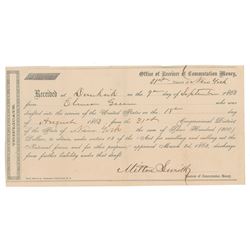 Office of Receiver of Commutation Money,
31st New York
Received at Dunkirk on the 9th day of September 1863
from Elmer Green who was
drafted into the service of the United States on the 18th day
of August 1863 from the 31st Congressional District
of the State of New York the sum of Three Hundred (300)
Dollars, to obtain, under section 13 of the "Act for enrolling and calling out the
National forces and for other purposes," approved March 3d, 1863, discharge
from further liability under that draft.
Milton Smith
Receiver of Commutation Money.